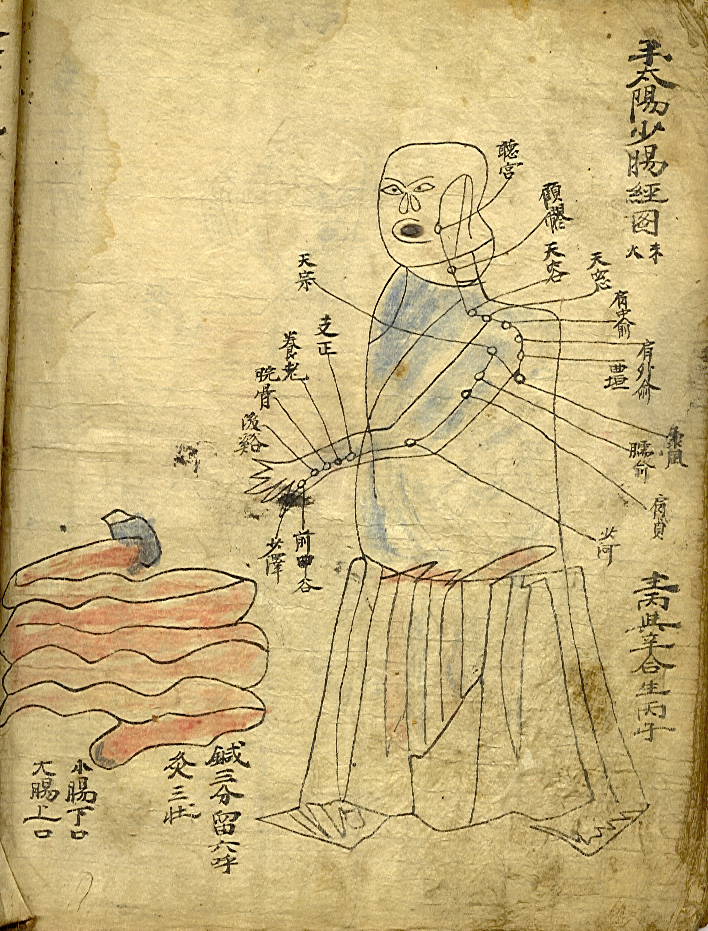 手太陽少腸經图
火
聽宮
顴髎
天容
天窓
肩中俞
肩外俞
曲垣
秉風
臑俞
肩貞
天宗
支正
養老
腕骨
後谿
前谷
少澤
丙
辛合生丙子
鍼三分留六呼
灸三壯
小腸下口
大腸上口